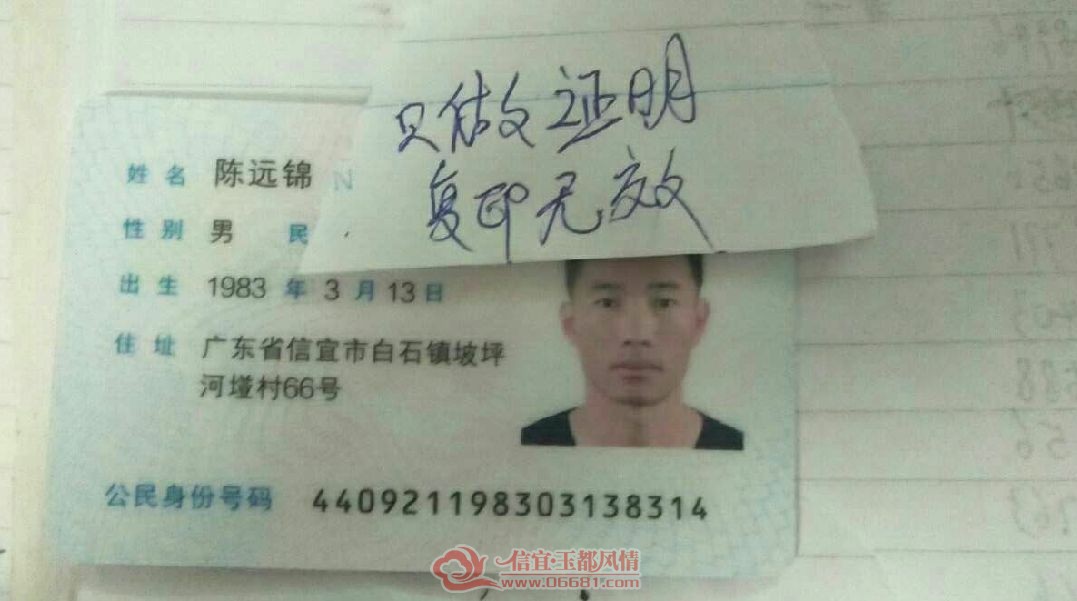 只做证明
复印无效
姓名 陈远锦
性别 男 民
出生 1983 年 3 月 13 日
住址 广东省信宜市白石镇坡坪
村66号
公民身份号码 440921198303138314
信宜·玉都风情
www.06681.com